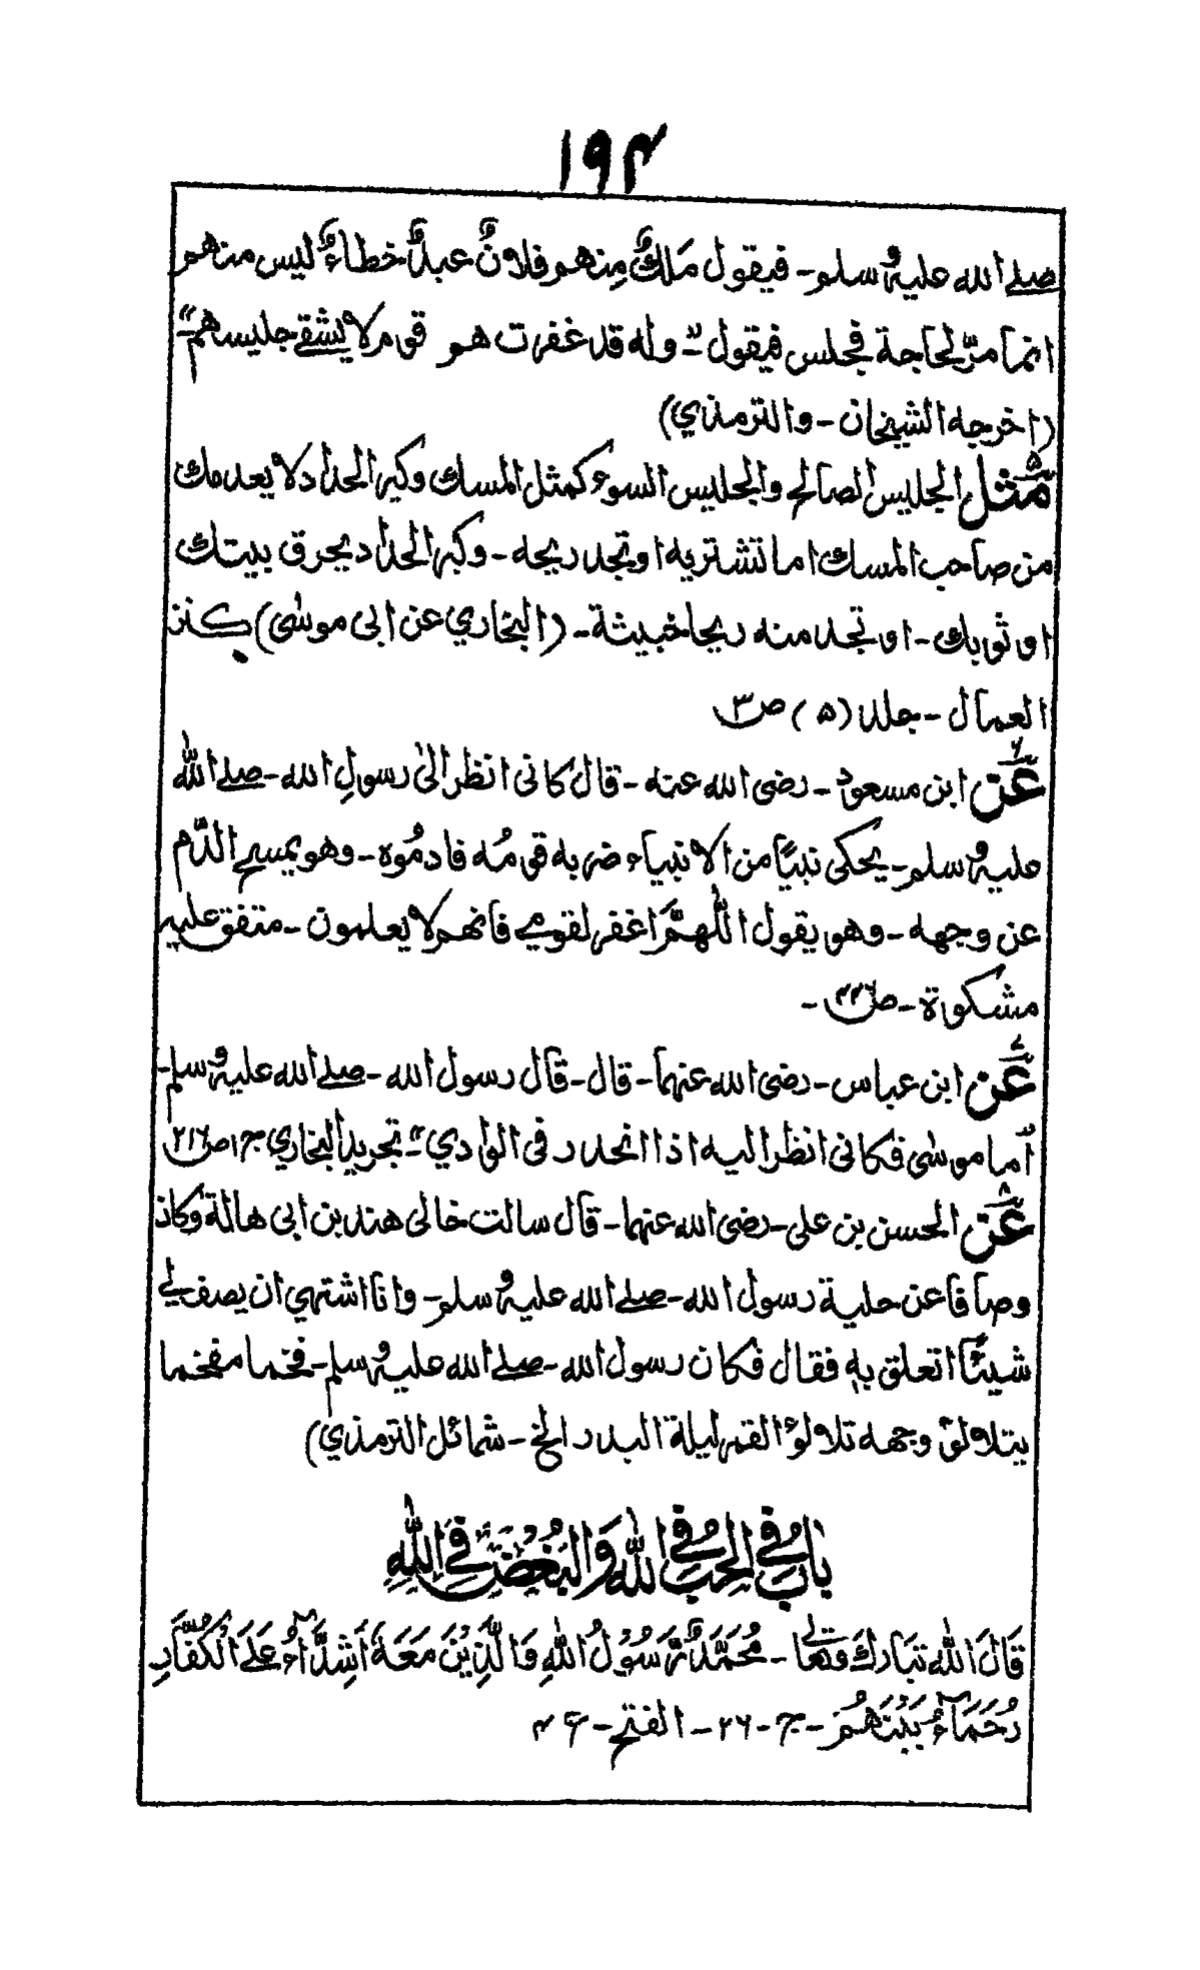 ۱۹۴
صلے اللہ علیہ وسلم۔ فیقول مَلَکٌ مِنهم فلانٌ عبدٌ خطاءٌ لیس منهم
انما مرّ لحاجة فجلس فیقول "۔ وله قد غفرت هم قوم لا یشقے جلیسهم"۔
(اخرجه الشیخان۔ والترمذي)
۵ مَثل الجلیس الصالح والجلیس السوء کمثل المسك وکیر الحداد لا یعدمك
من صاحب المسك اما تشتریه او تجد ریحه۔ وکیر الحداد یحرق بیتك
او ثوبك۔ او تجد منه ریحا خبیثة۔ (البخاري عن ابی موسٰی) کنز
العمال۔ جلد (۵) ص۳
۶ عَن ابن مسعود۔ رضی اللہ عنه۔ قال کانی انظر الیٰ رسولِ اللہ۔ صلے اللہ
علیہ وسلم۔ یحکی نبیًا من الانبیاء ضربه قومُه فادمُوہ۔ وهو یمسح الدّم
عن وجهه۔ وهو یقول اللّٰهمَّ اغفر لقومي فانهم لا یعلمون۔ متفق علیہ
مشکوة۔ ص۴۴۶۔
۷ عَن ابن عباس۔ رضی اللہ عنهما۔ قال۔ قال رسول اللہ۔ صلے اللہ علیہ وسلم۔
اَما موسٰی فکانی انظر الیه اذا انحدر فی الوادي"۔ تجرید البخاري ج۱ ص۲۱۶
۸ عَن الحسن بن علی۔ رضی اللہ عنهما۔ قال سالت خالی هند بن ابی هالة وکان
وصافا عن حلیة رسول اللہ۔ صلے اللہ علیہ وسلم۔ وانا اشتهي ان یصف لي
شیئًا اتعلق بهٖ فقال فکان رسول اللہ۔ صلے اللہ علیہ وسلم۔ فخما مفخما
یتلاولؤ وجهه تلاولؤ القمر لیلة البدر الخ۔ شمائل الترمذي)
بابُ فِي الحبِّ فِي اللهِ وَالبُغضِ فِي اللهِ
قَالَ اللهُ تَبَارَكَ وَتَعَالٰی۔ مُحَمَّدٌ رَّسُوْلُ اللهِ وَالَّذِیْنَ مَعَهٗ اَشِدَّآءُ عَلَی الْکُفَّارِ
رُحَمَآءُ بَیْنَهُمْ۔ ج۔ ۲۶۔ الفتح۔ ع ۴